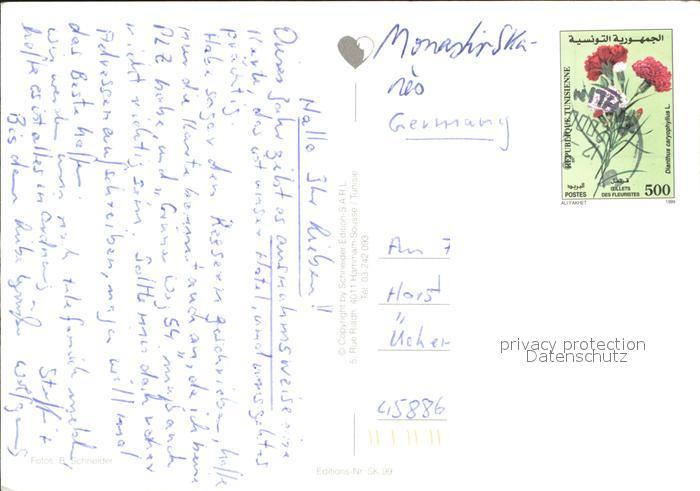 Hallo Ihr Lieben!!
Dieses Jahr gibt es ausnahmsweise eine
Karte, das ist unser Hotel, und uns geht es
prächtig.
Habe sogar den Kessern geschrieben, hoffe
nur die Karte kommt auch an, da ich keine
PLZ habe, und „Grüner Weg 54" muß auch
nicht richtig sein. Sollte mir doch vorher
Adressen aufschreiben, naja will mal
das Beste hoffen.
Wir werden uns noch telefonisch melden,
hoffe es ist alles in Ordnung.
Bis dann liebe Grüße Wolfgang
Monastir Ska-
nès
Germany
An
Horst
45886
© Copyright by Schneider Edition S.A.R.L.
5, Rue Riadh, 4011 Hammam-Sousse / Tunisie
Tel. 03-242 093
Fotos: B. Schneider
Editions-Nr. SK 99
الجمهورية التونسية
REPUBLIQUE TUNISIENNE
Dianthus caryophyllus L.
البريد
POSTES
قرنفل
ŒILLETS
DES FLEURISTES
500
ALI FAKHET
1999
privacy protection
Datenschutz